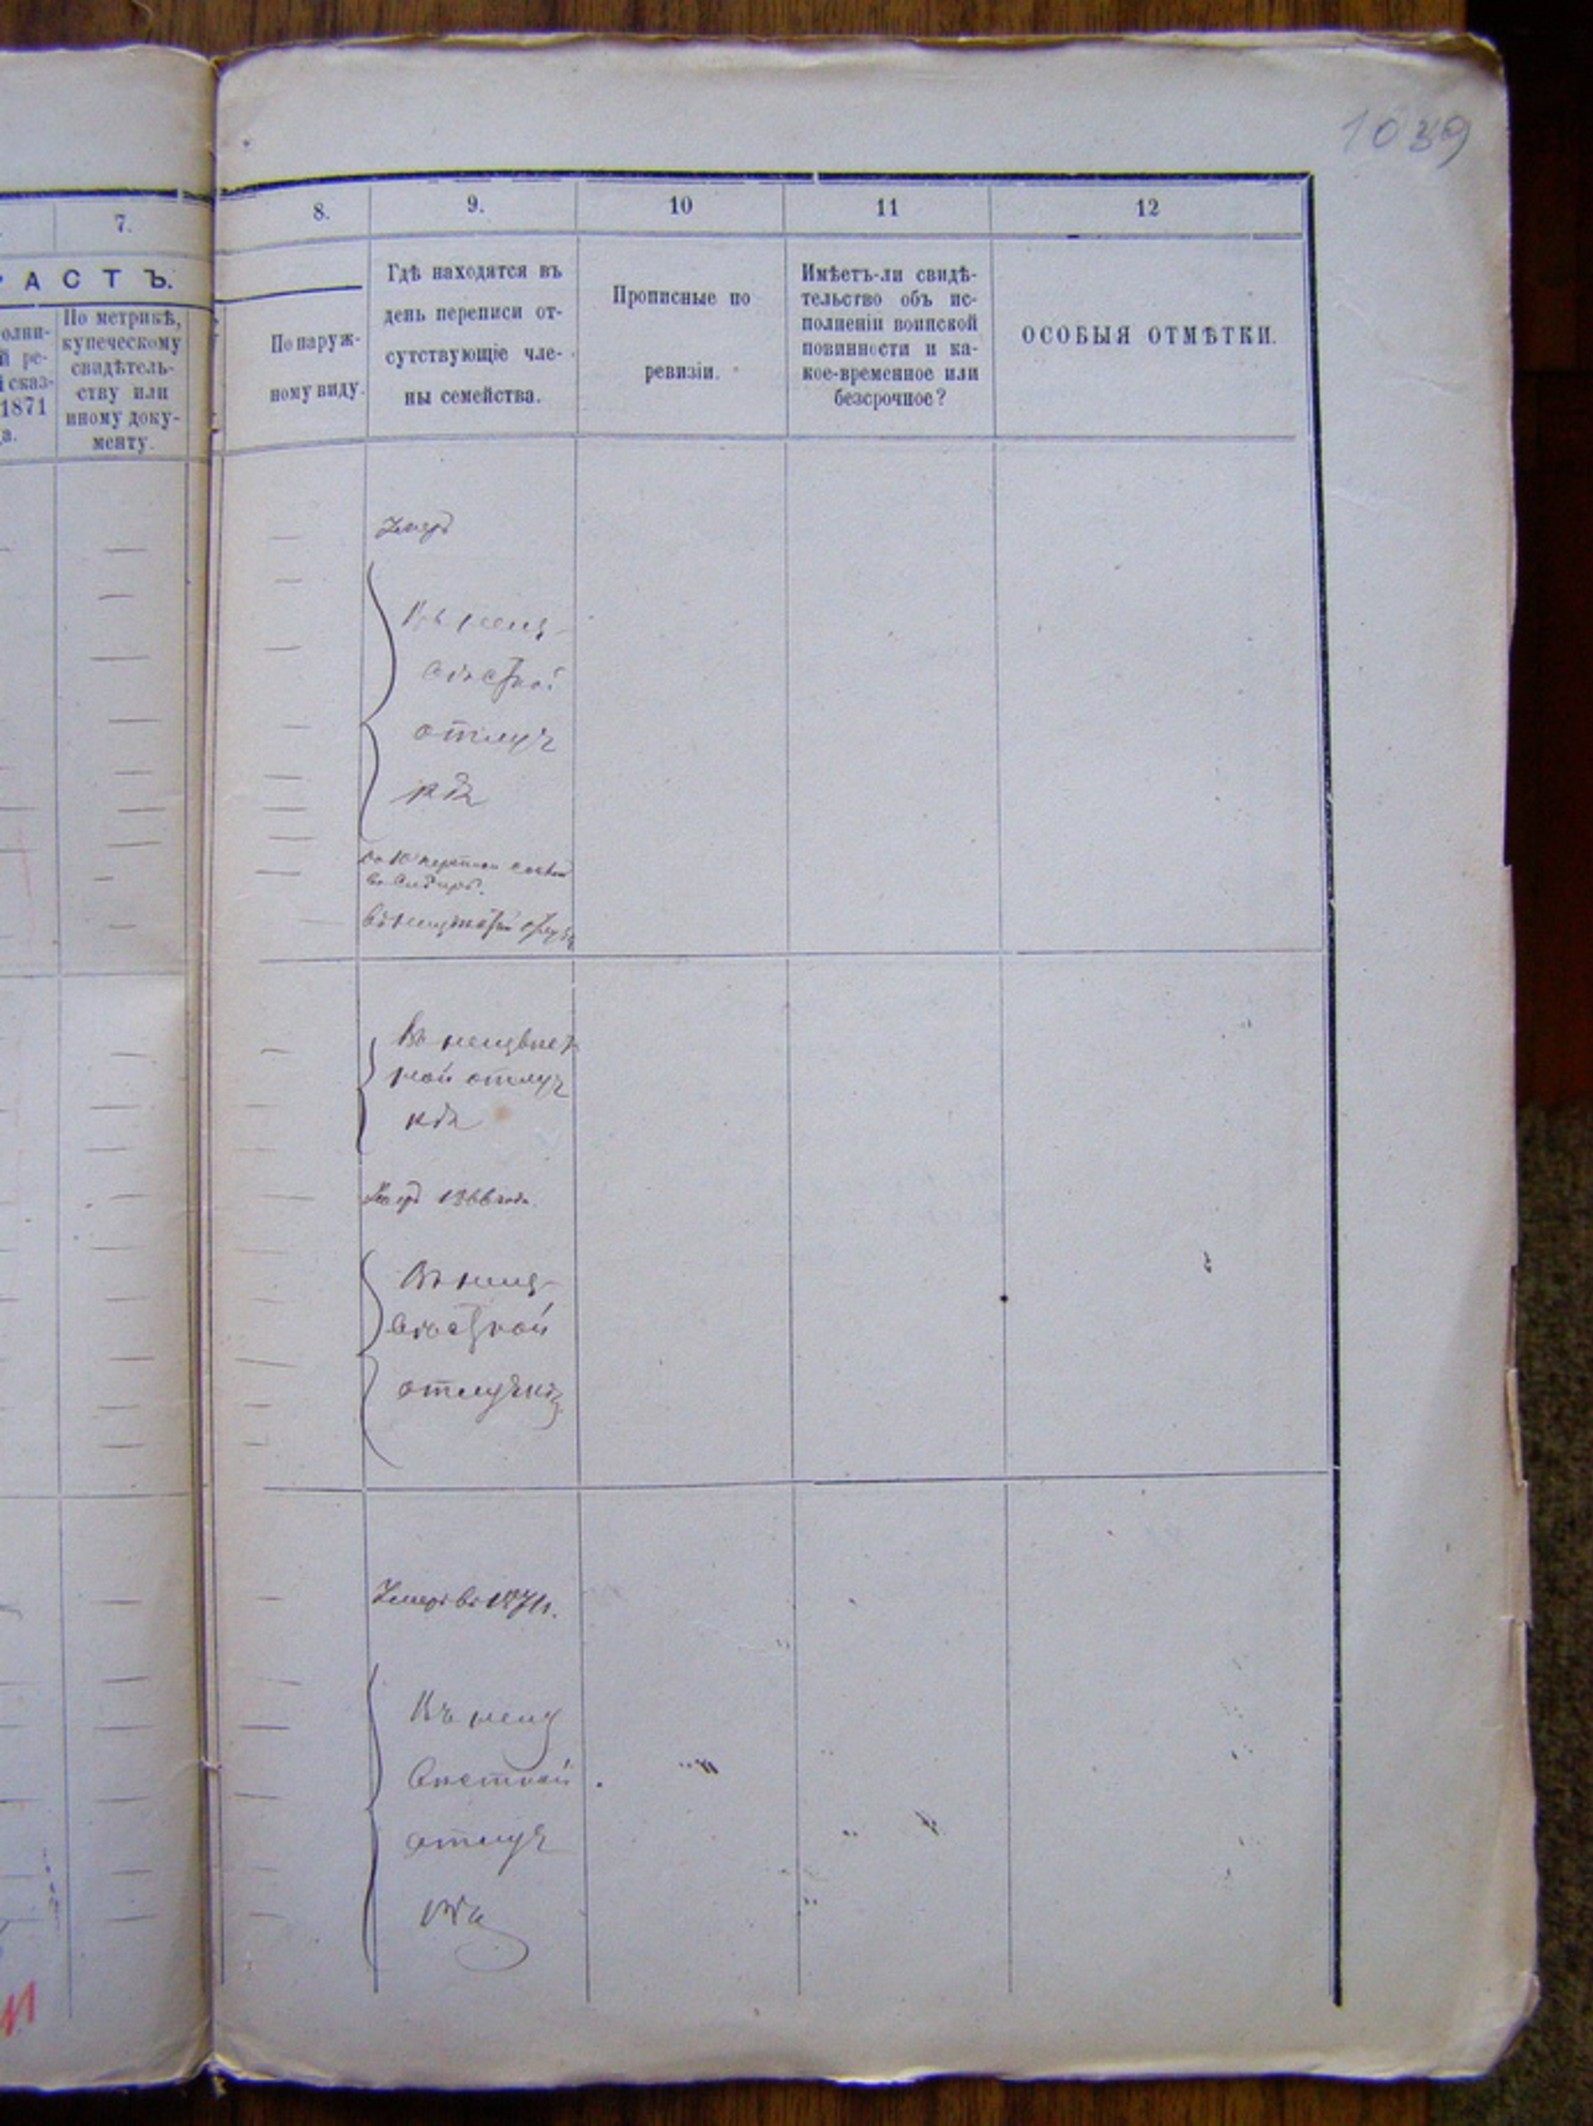 1039
7.
8.
9.
10
11
12
АСТЪ.
По метрикѣ,
купеческому
свидѣтель-
ству или
иному доку-
менту.
1871
По наруж-
ному виду.
Гдѣ находятся въ
день переписи от-
сутствующіе чле-
ны семейства.
Прописные по
ревизіи.
Имѣетъ-ли свидѣ-
тельство объ ис-
полненіи воинской
повинности и ка-
кое-временное или
безсрочное?
ОСОБЫЯ ОТМѢТКИ.
Умеръ
Въ неиз-
вѣстной
отлуч
кѣ
въ Сибирь.
въ неизвѣстной отлучкѣ
Въ неизвѣст
ной отлуч
кѣ
Умеръ 1866 года.
Въ неиз-
вѣстной
отлучкѣ
Умеръ въ 1871г.
Въ неиз
вѣстной
отлуч
кѣ